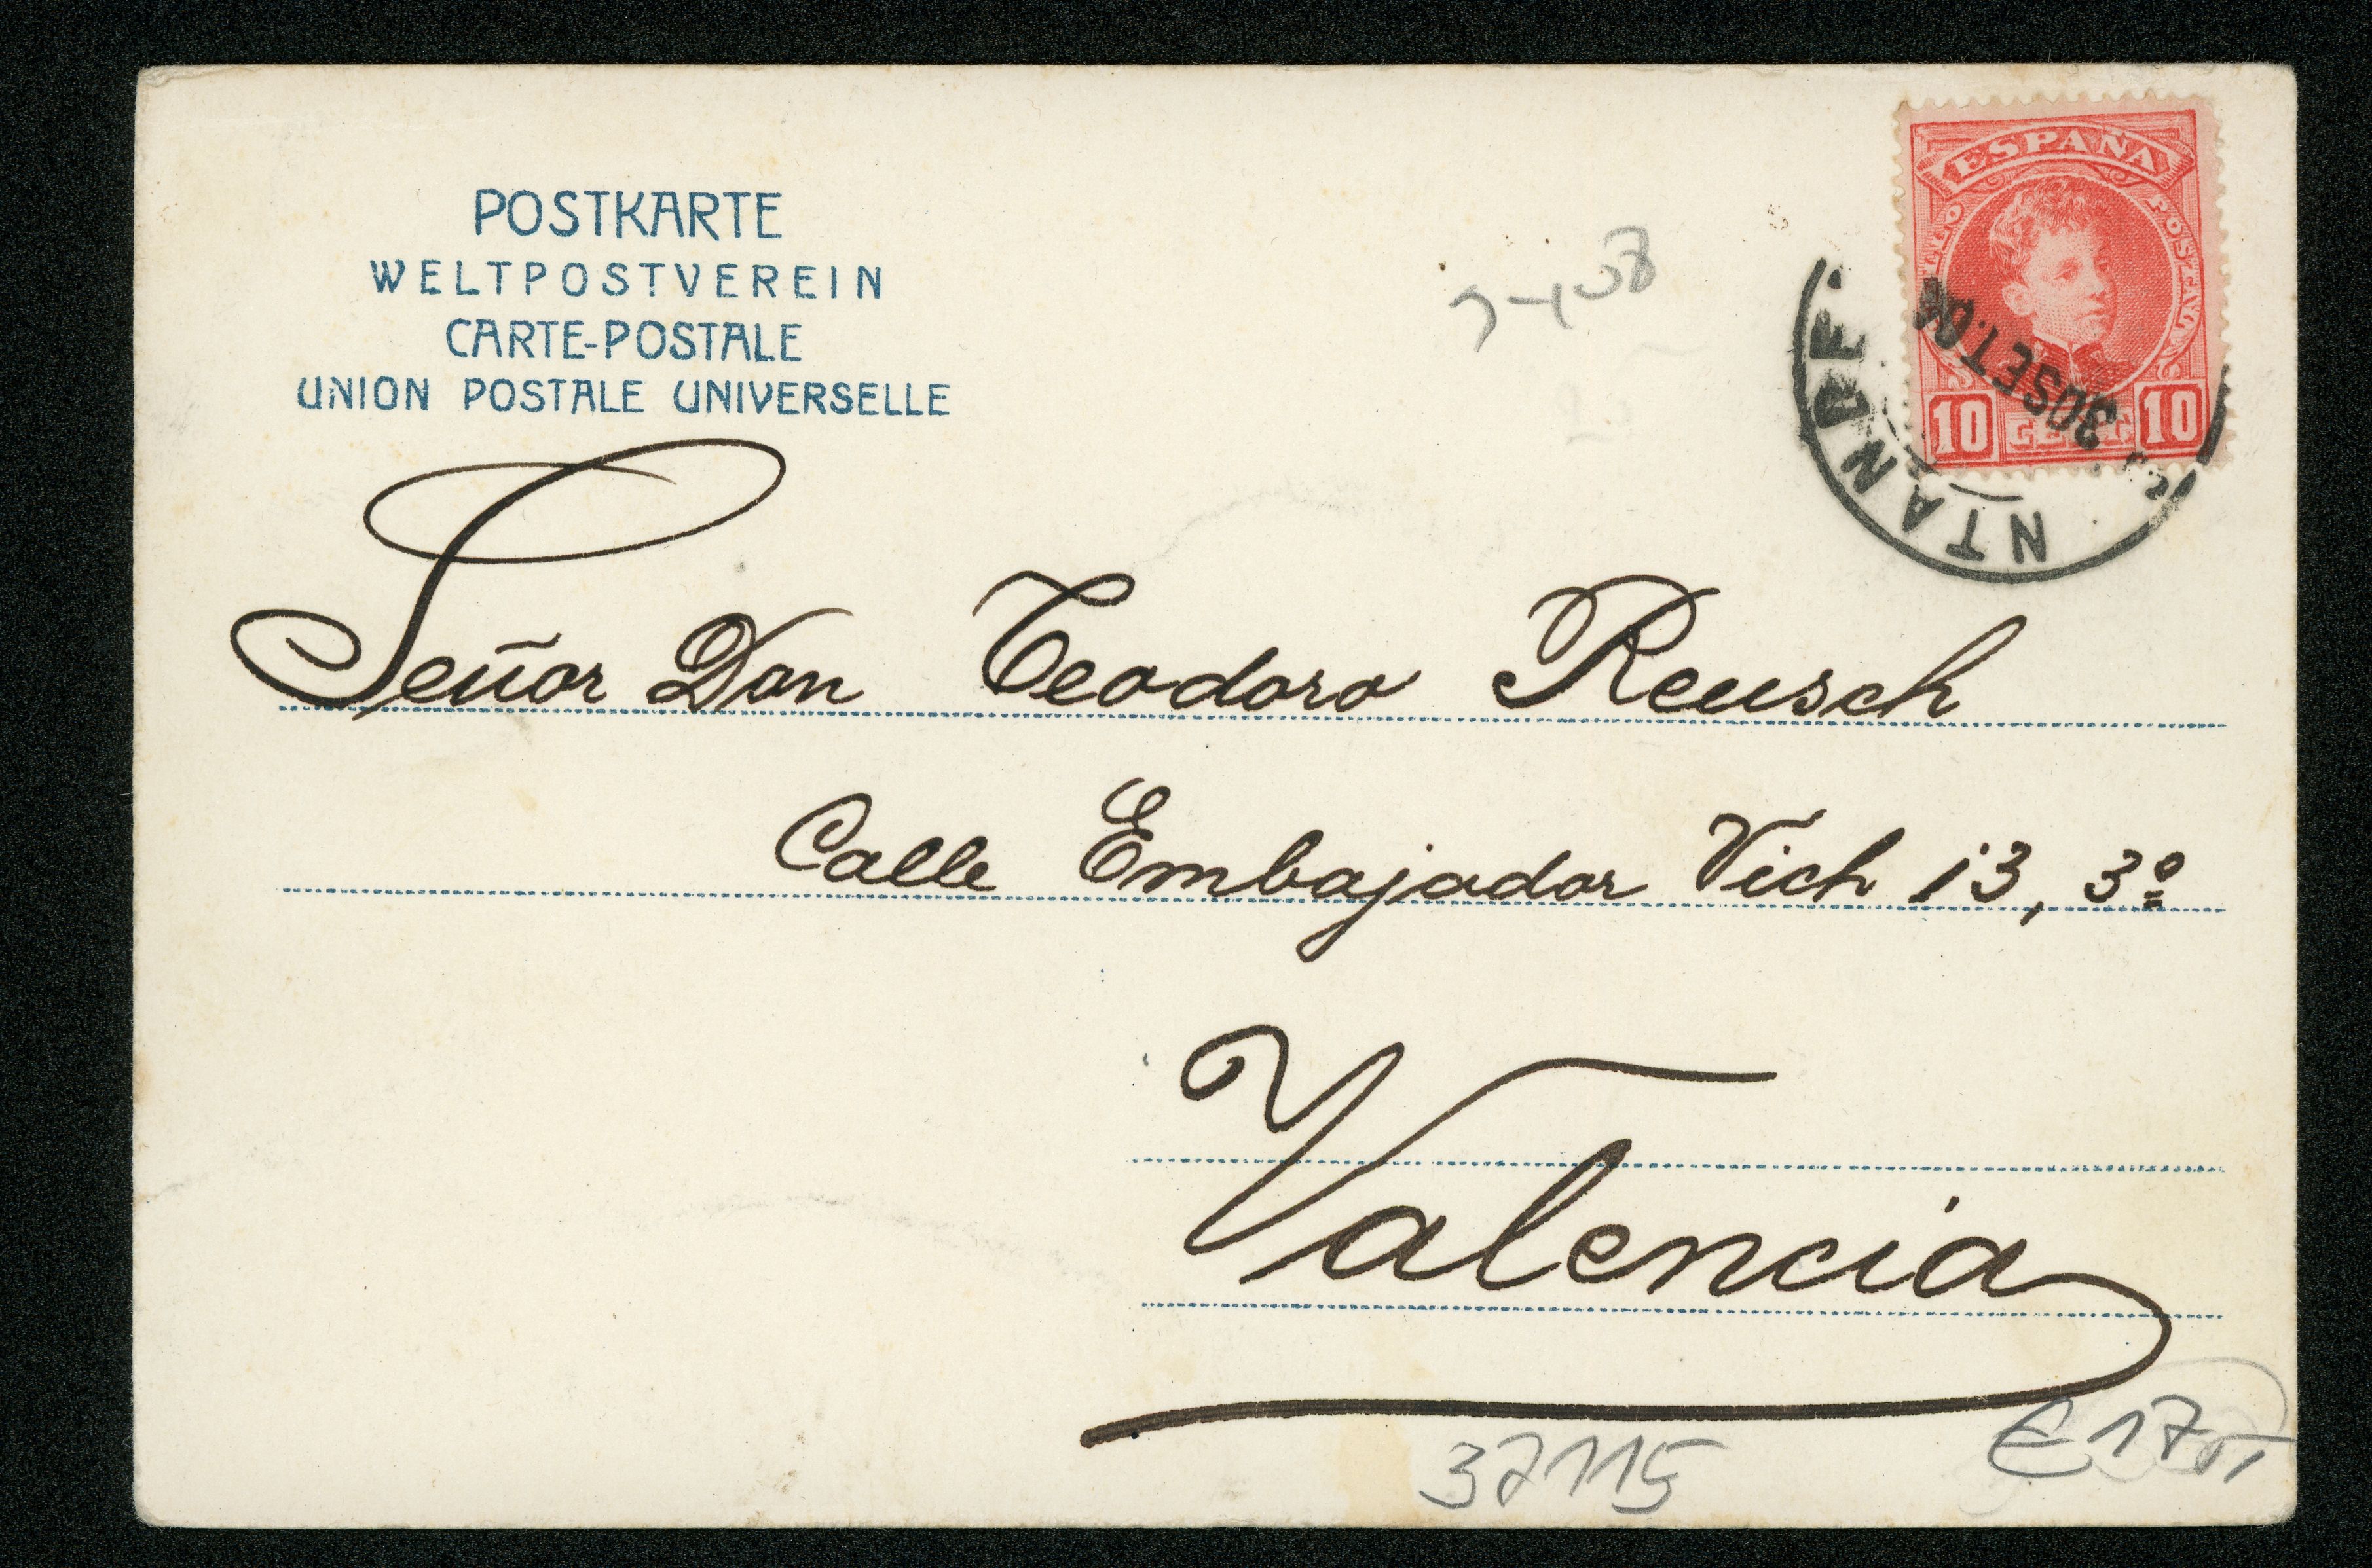 POSTKARTE
WELTPOSTVEREIN
CARTE-POSTALE
UNION POSTALE UNIVERSELLE
ESPAÑA
POSTAL
10 CENTS 10
NTANDE
30 SET.04
Señor Don Teodoro Reusch
Calle Embajador Vich 13, 3º
Valencia
37115